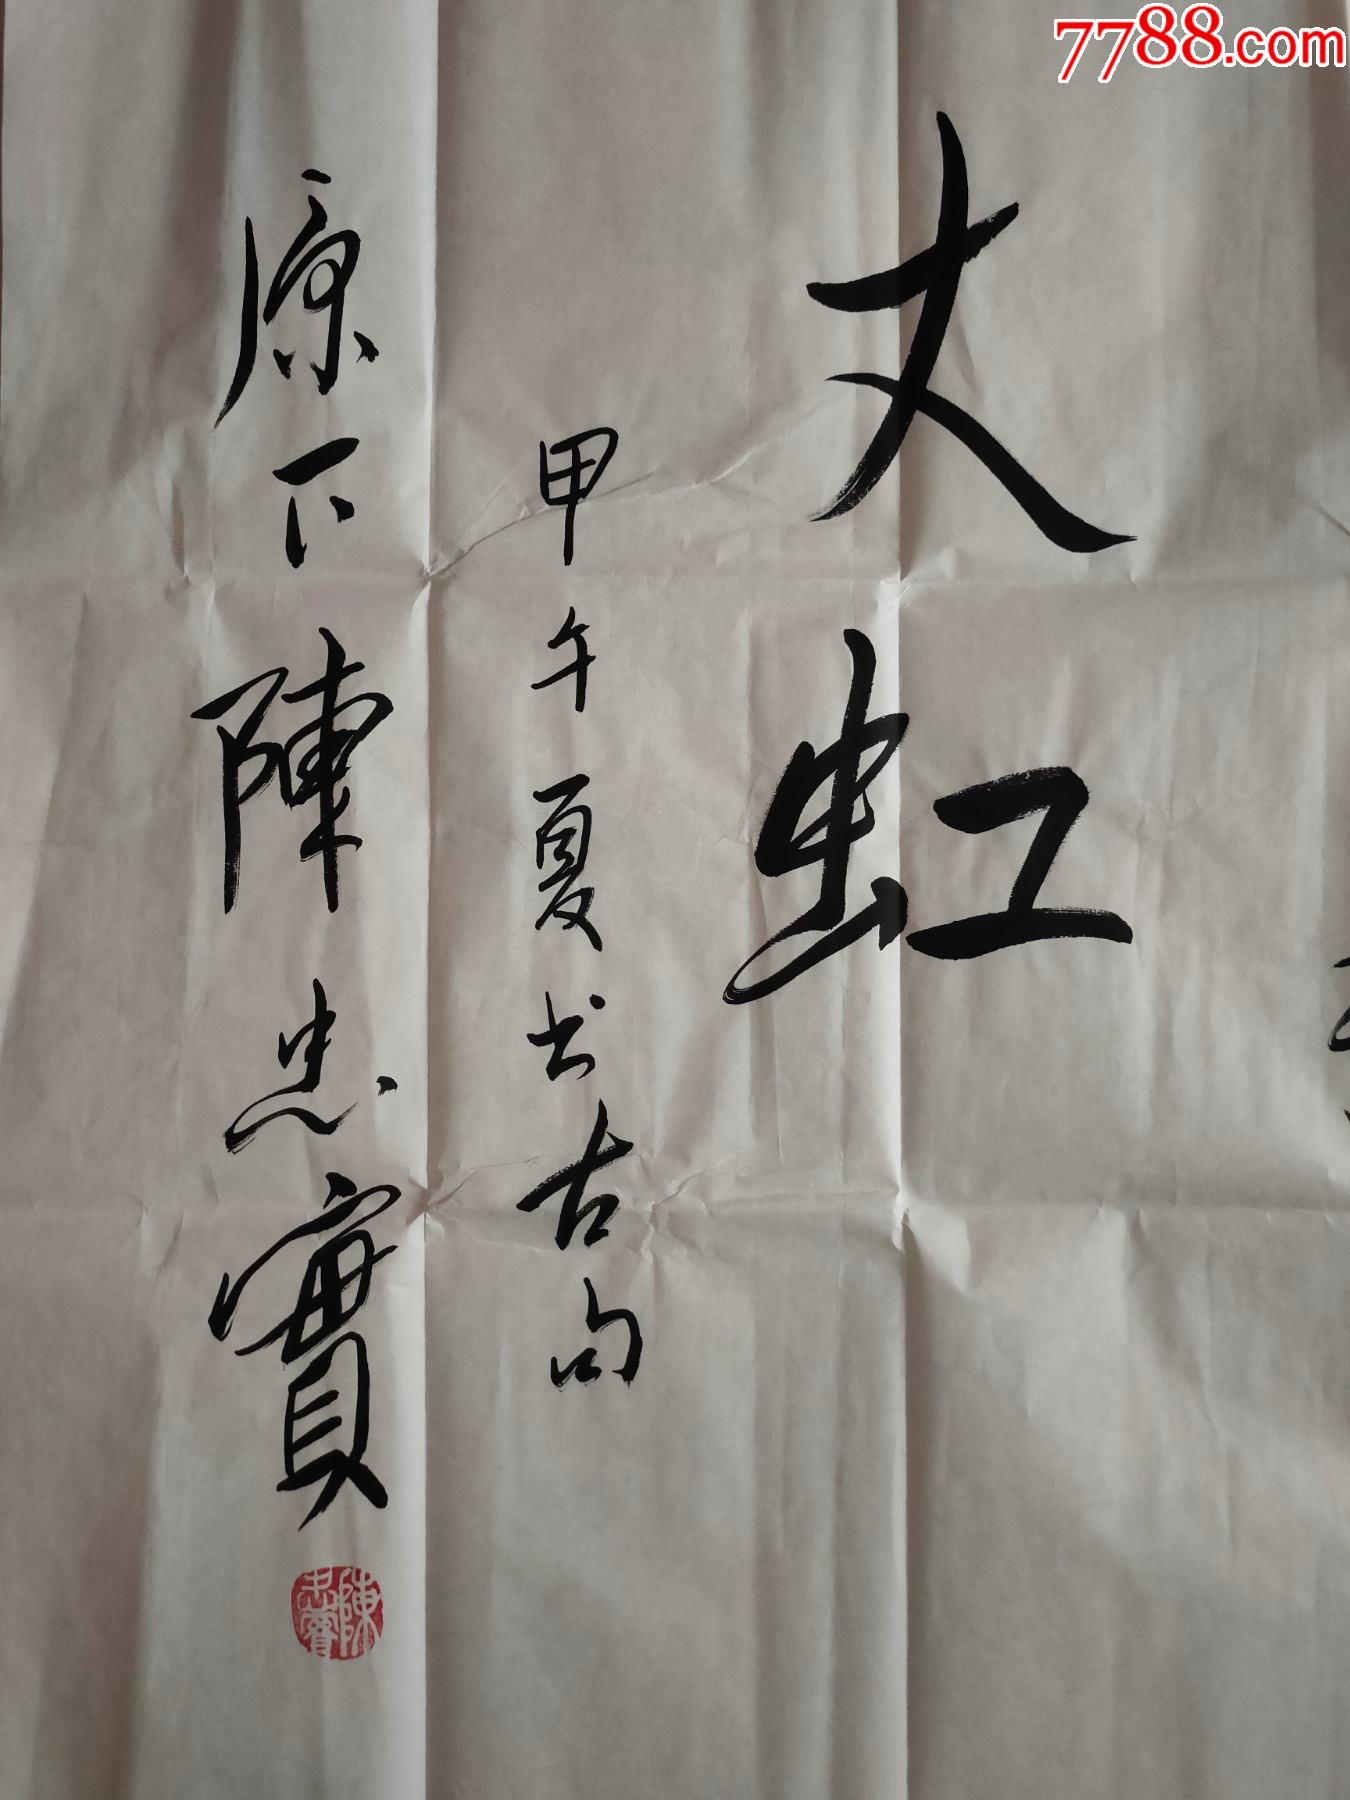 7788.com
丈虹
甲午夏书古句
原下陳忠實
陳忠實